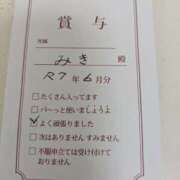 賞与
所属
みき 殿
R7年6月分
□たくさん入ってます
□パーっと使いましょうよ
☑よく頑張りました
□次はありません すみません
□不服申立ては受け付けて
おりません